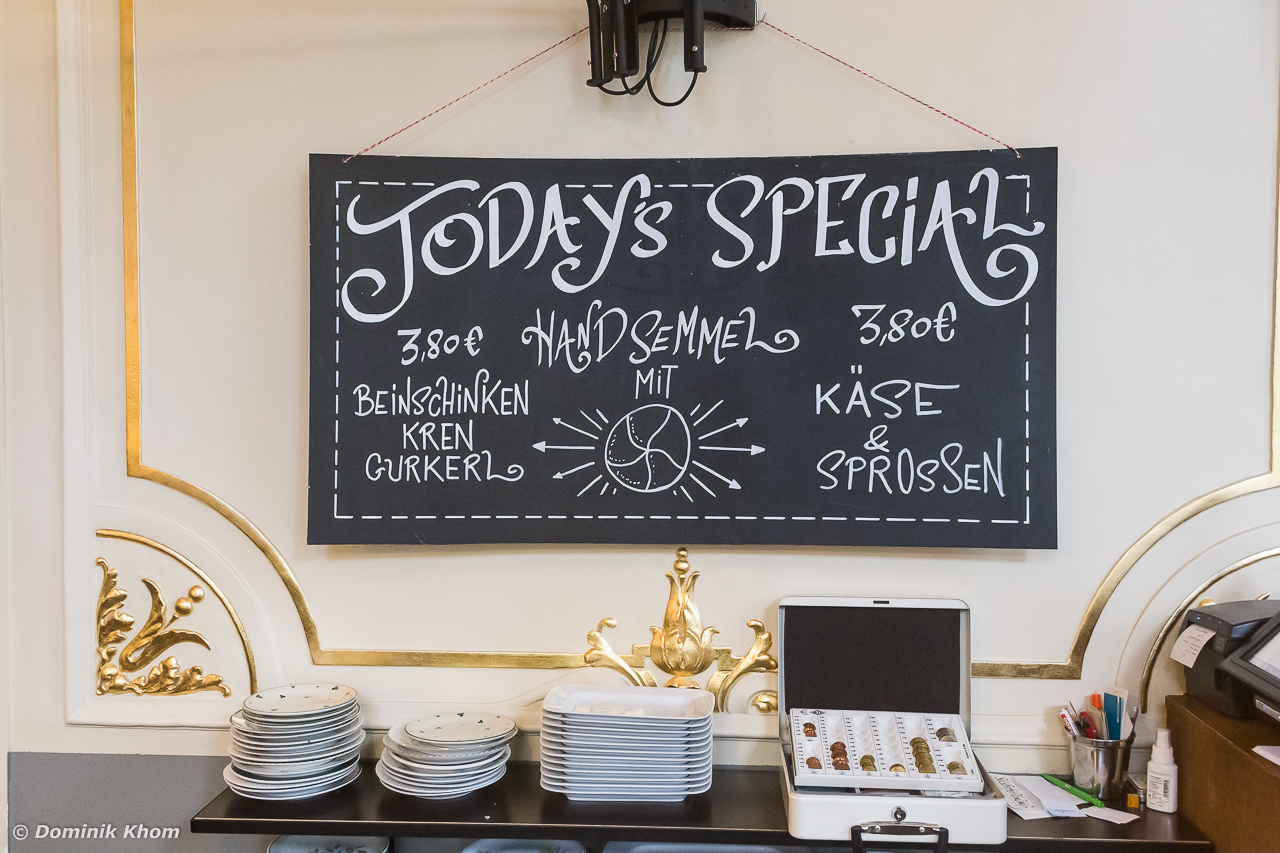 TODAY'S SPECIAL
HANDSEMMEL
MIT
3,80€
BEINSCHINKEN
KREN
GURKERL
3,80€
KÄSE
&
SPROSSEN
© Dominik Khom